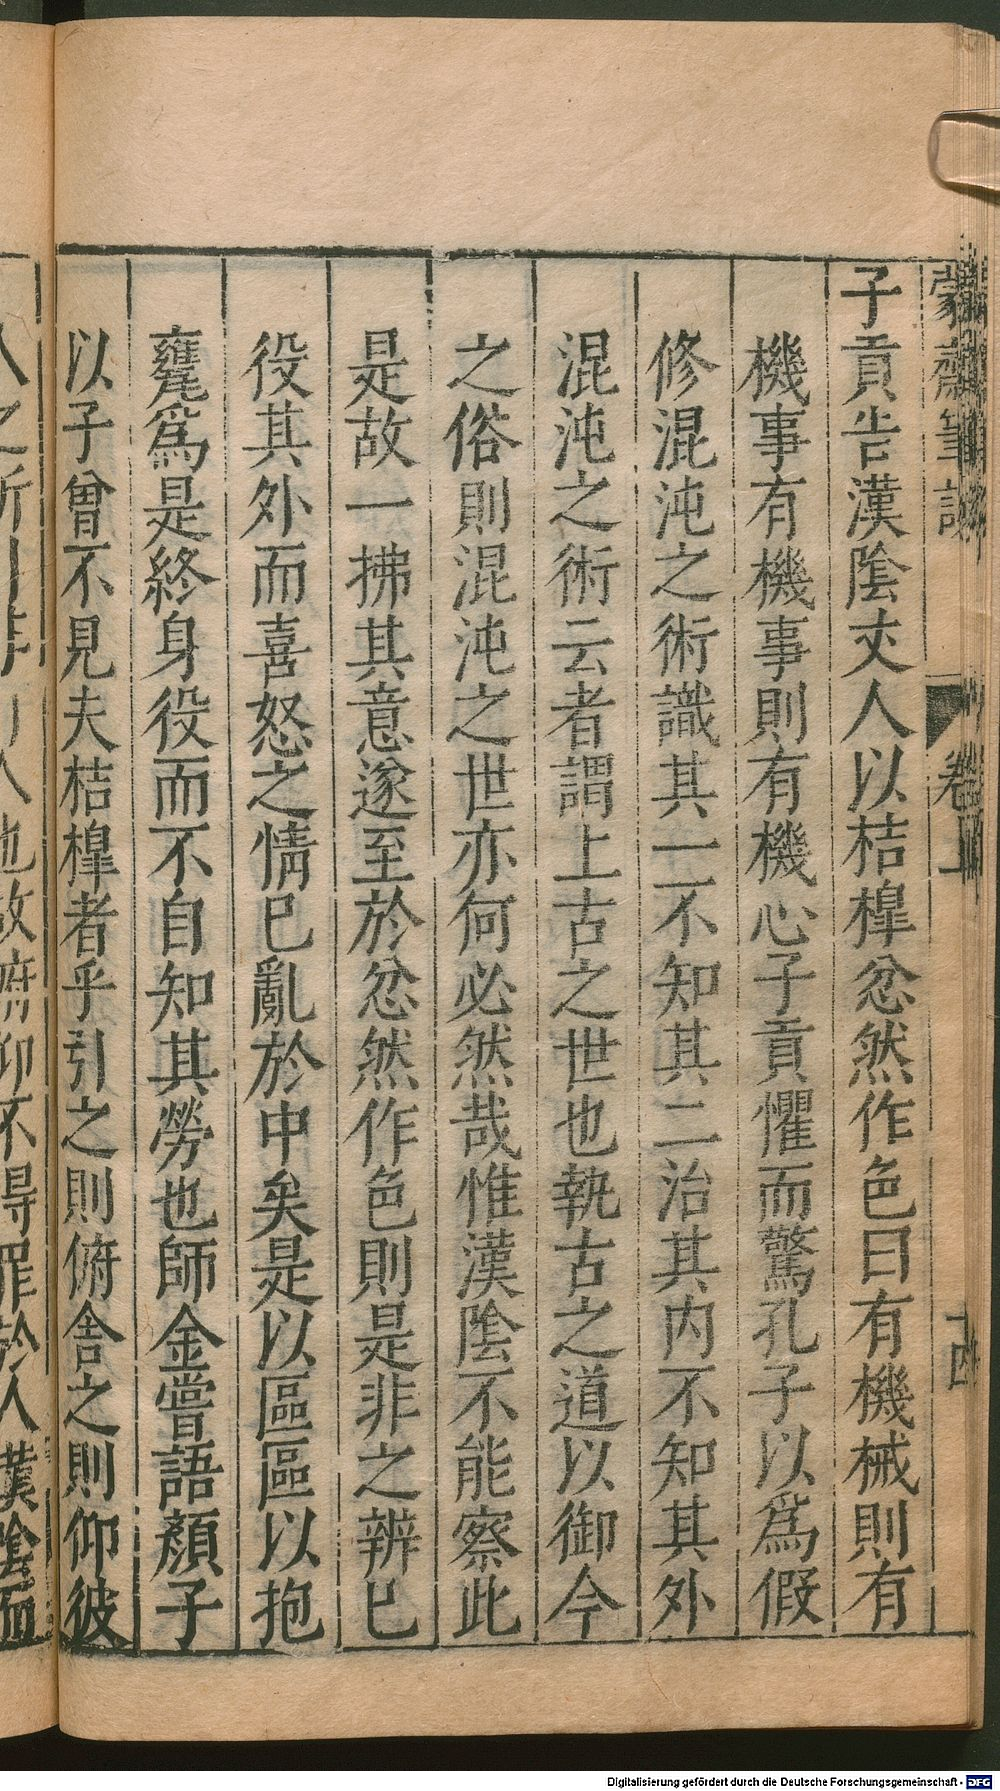 蒙齋筆談
卷上
十四
子貢告漢陰丈人以桔槹忿然作色曰有機械則有
機事有機事則有機心子貢懼而驚孔子以為假
修混沌之術識其一不知其二治其內不知其外
混沌之術云者謂上古之世也執古之道以御今
之俗則混沌之世亦何必然哉惟漢陰不能察此
是故一拂其意遂至於忿然作色則是非之辨已
役其外而喜怒之情已亂於中矣是以區區以抱
甕為是終身役而不自知其勞也師金嘗語顏子
以子曾不見夫桔槹者乎引之則俯舍之則仰彼
人之所引非引人也故俯仰不得罪於人漢陰而
Digitalisierung gefördert durch die Deutsche Forschungsgemeinschaft - DFG